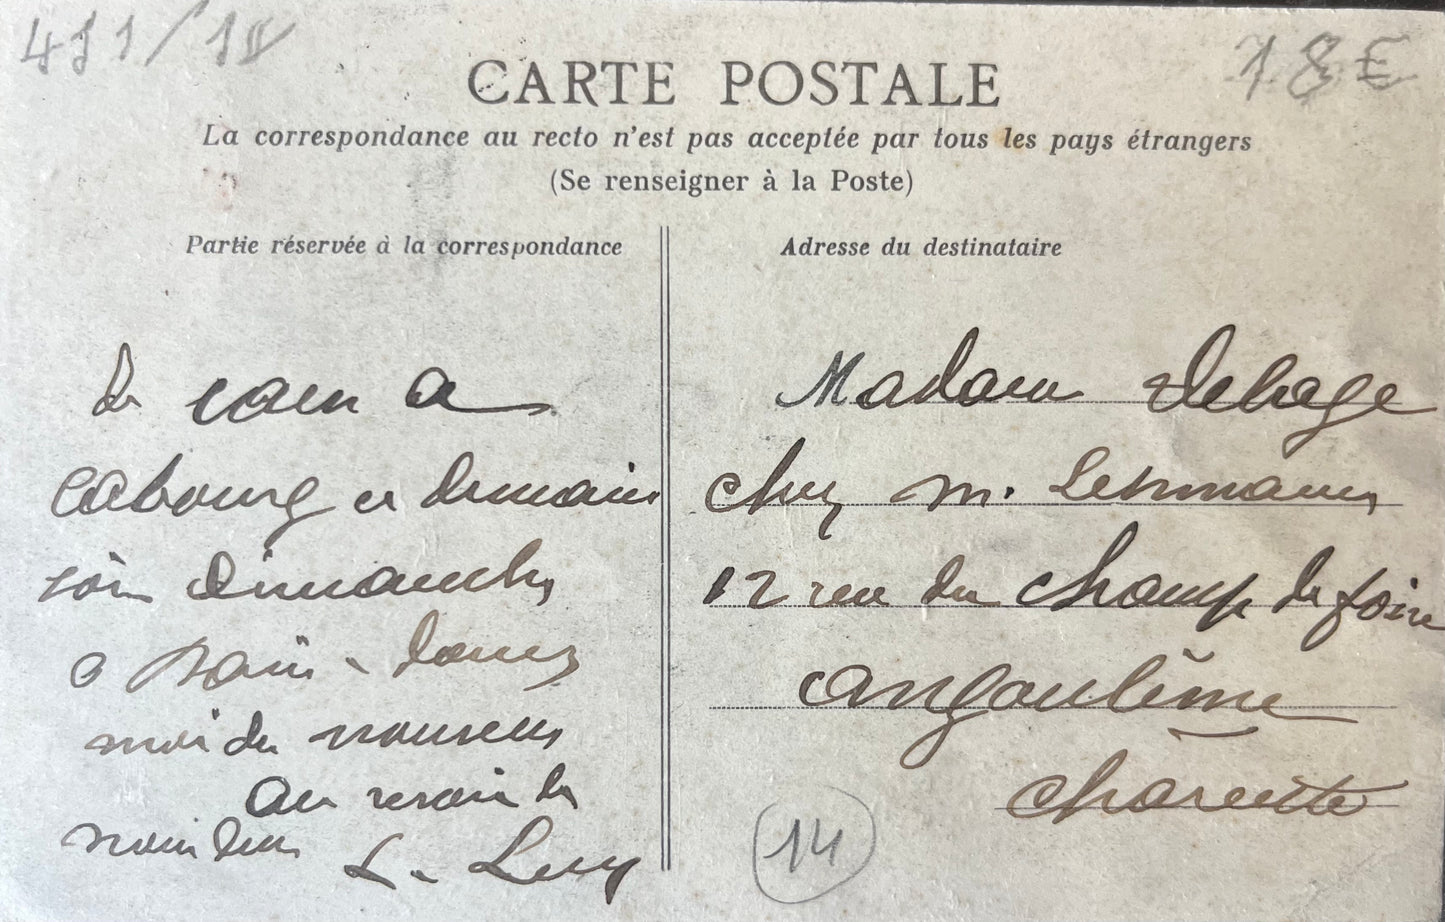 18€
CARTE POSTALE
La correspondance au recto n'est pas acceptée par tous les pays étrangers
(Se renseigner à la Poste)
Partie réservée à la correspondance
de caen a
Cabourg et demain
soir dimanche
a donnez
moi de nouvelles
au revoir la
L. Levy
Adresse du destinataire
Madame Delage
chez m. Lehmann
12 rue du champ de foire
angoulême
charente
14